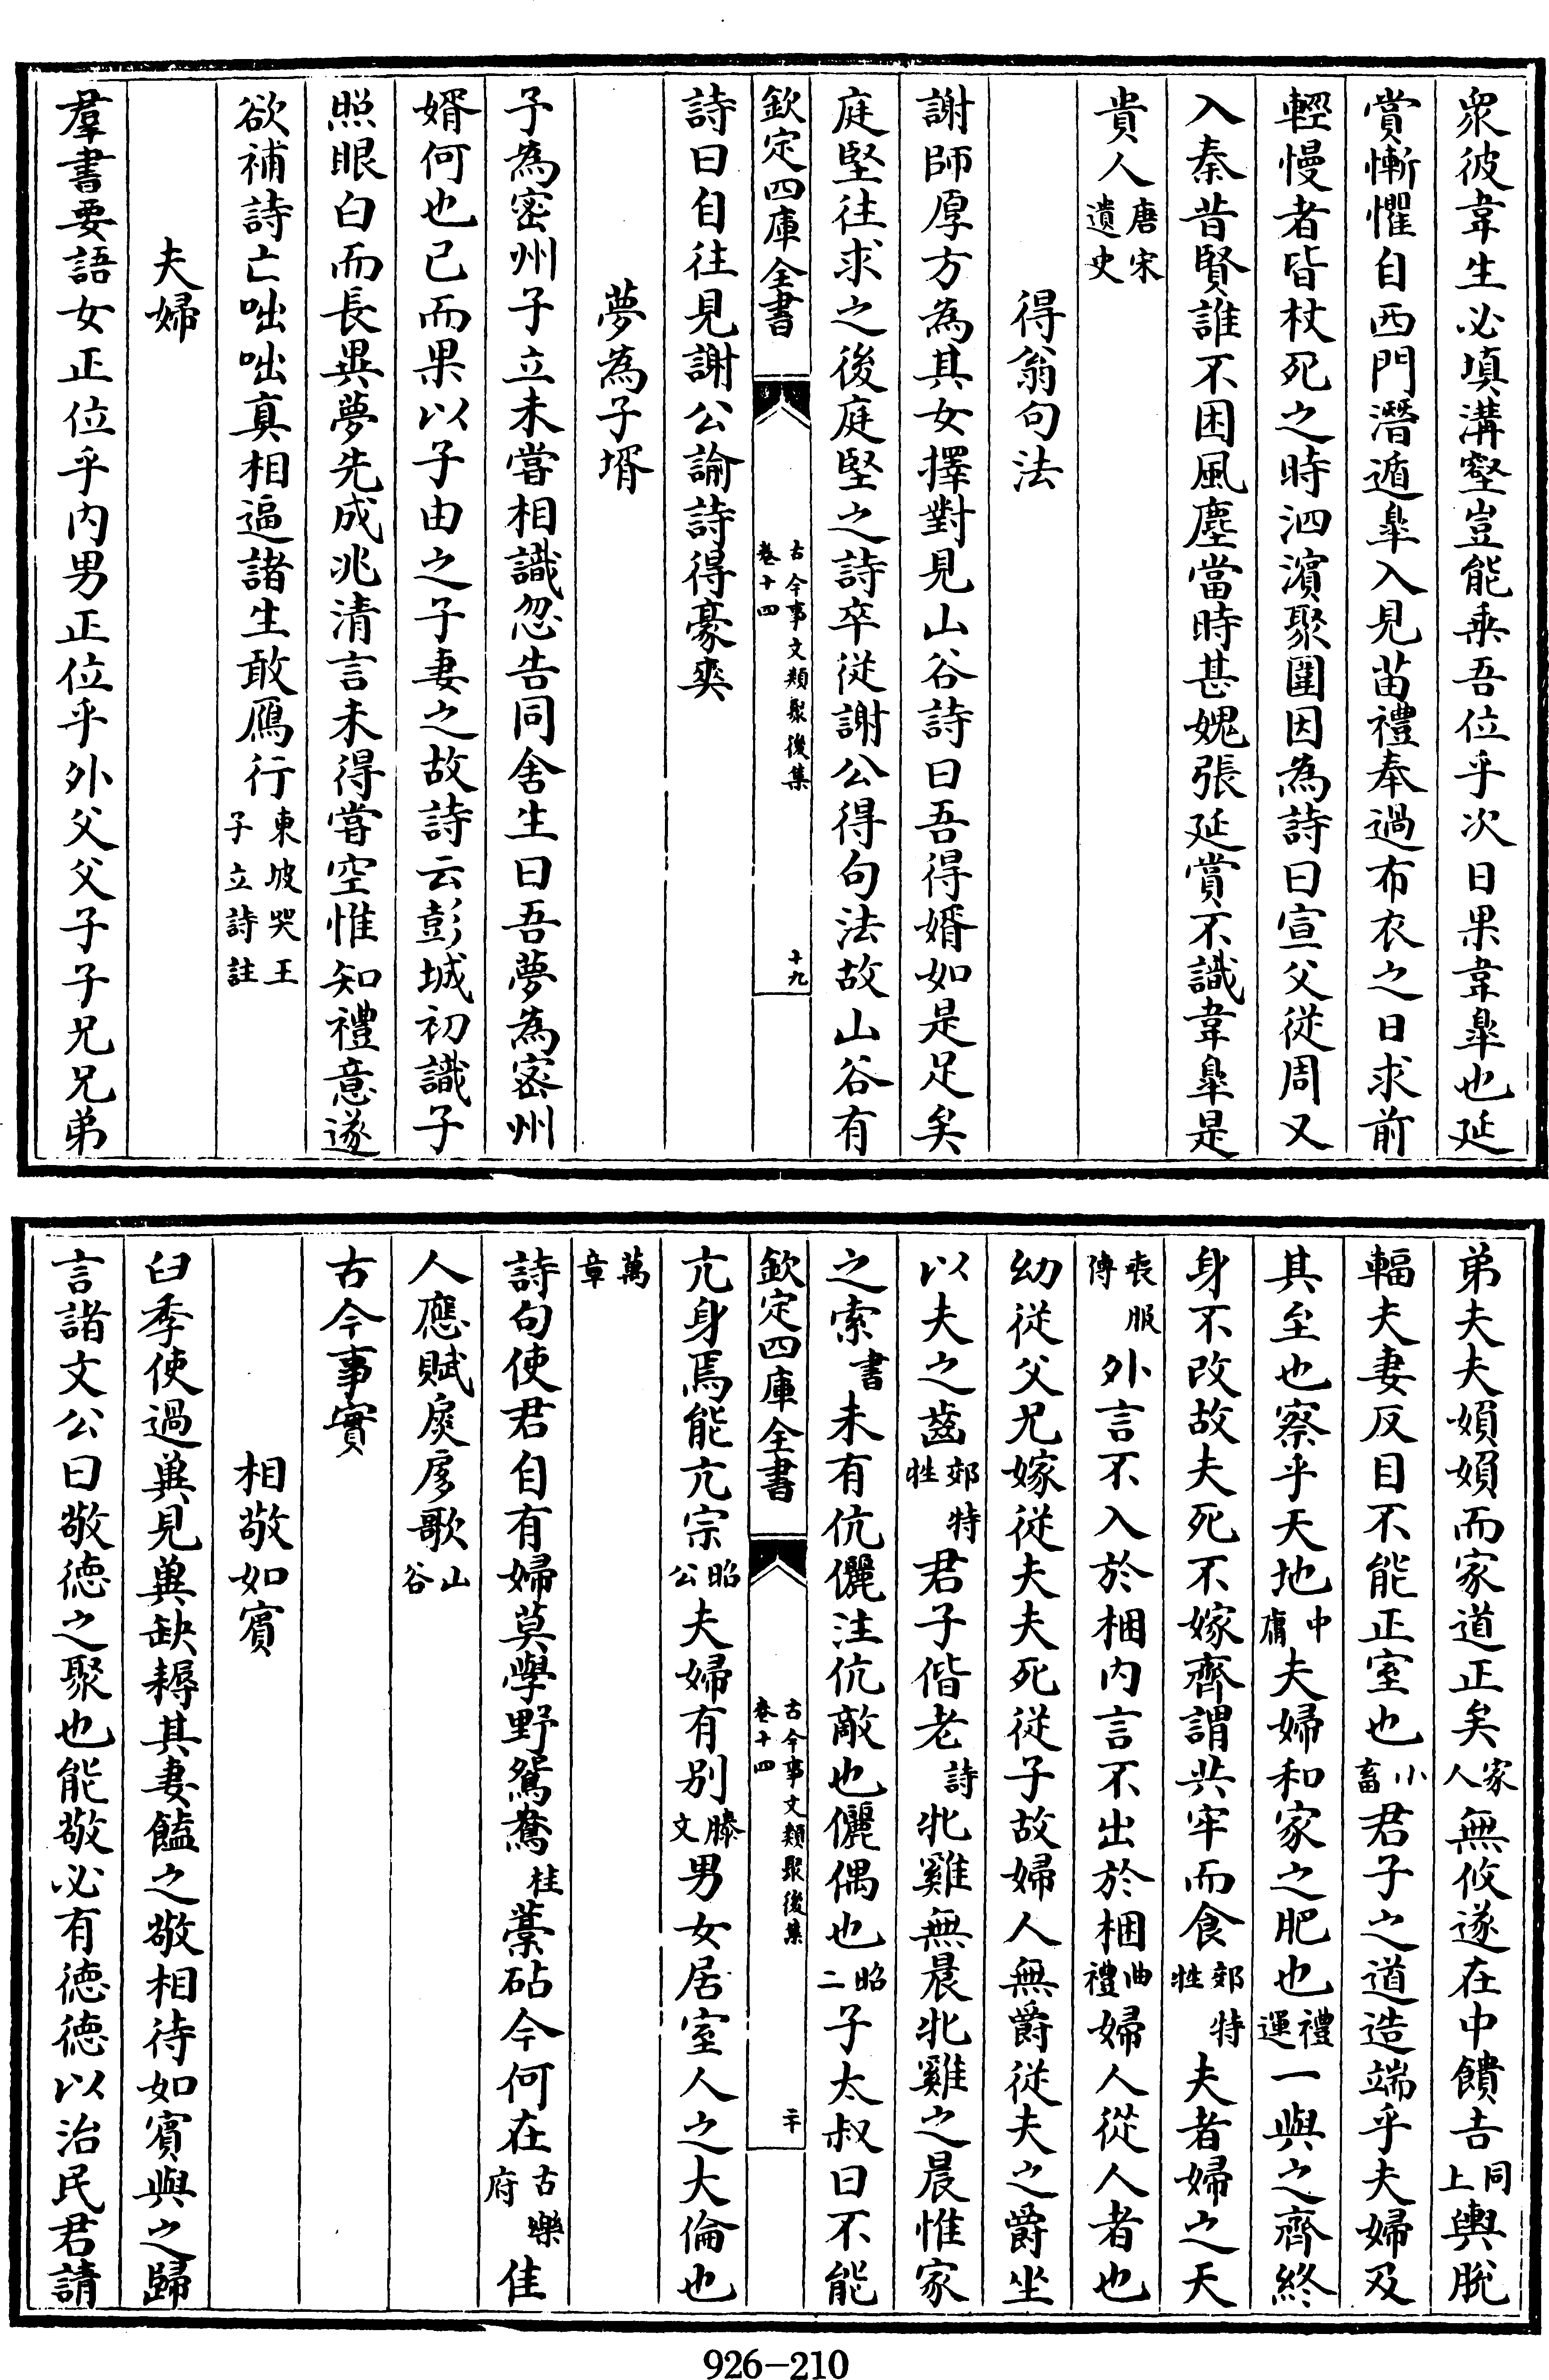 衆彼韋生必填溝壑豈能乘吾位乎次日果韋臯也延
賞慚懼自西門潛遁臯入見苗禮奉過布衣之日求前
輕慢者皆杖死之時泗濱聚圍因為詩曰宣父從周又
入秦昔賢誰不困風塵當時甚媿張延賞不識韋臯是
貴人唐宋遺史
得翁句法
謝師厚方為其女擇對見山谷詩曰吾得婿如是足矣
庭堅往求之後庭堅之詩卒從謝公得句法故山谷有
欽定四庫全書 古今事文類聚後集 卷十四 十九
詩曰自往見謝公論詩得豪爽
夢為子壻
子為密州子立未嘗相識忽告同舍生曰吾夢為密州
婿何也已而果以子由之子妻之故詩云彭城初識子
照眼白而長異夢先成兆清言未得嘗空惟知禮意遂
欲補詩亡咄咄真相逼諸生敢鴈行東坡哭王子立詩註
夫婦
羣書要語女正位乎内男正位乎外父父子子兄兄弟
弟夫夫婦婦而家道正矣家人無攸遂在中饋吉同上輿脫
輻夫妻反目不能正室也小畜君子之道造端乎夫婦及
其至也察乎天地中庸夫婦和家之肥也禮運一與之齊終
身不改故夫死不嫁齊謂共牢而食郊特牲夫者婦之天
喪服傳外言不入於梱内言不出於梱曲禮婦人從人者也
幼從父兄嫁從夫夫死從子故婦人無爵從夫之爵坐
以夫之齒郊特牲君子偕老詩牝雞無晨牝雞之晨惟家
之索書未有伉儷注伉敵也儷偶也昭二子太叔曰不能
欽定四庫全書 古今事文類聚後集 卷十四 二十
亢身焉能亢宗昭公夫婦有别滕文男女居室人之大倫也
萬章
詩句使君自有婦莫學野鴛鴦桂藁砧今何在古樂府佳
人應賦扊扅歌山谷
古今事實
相敬如賓
臼季使過冀見冀缺耨其妻饁之敬相待如賓與之歸
言諸文公曰敬德之聚也能敬必有德德以治民君請
926-210